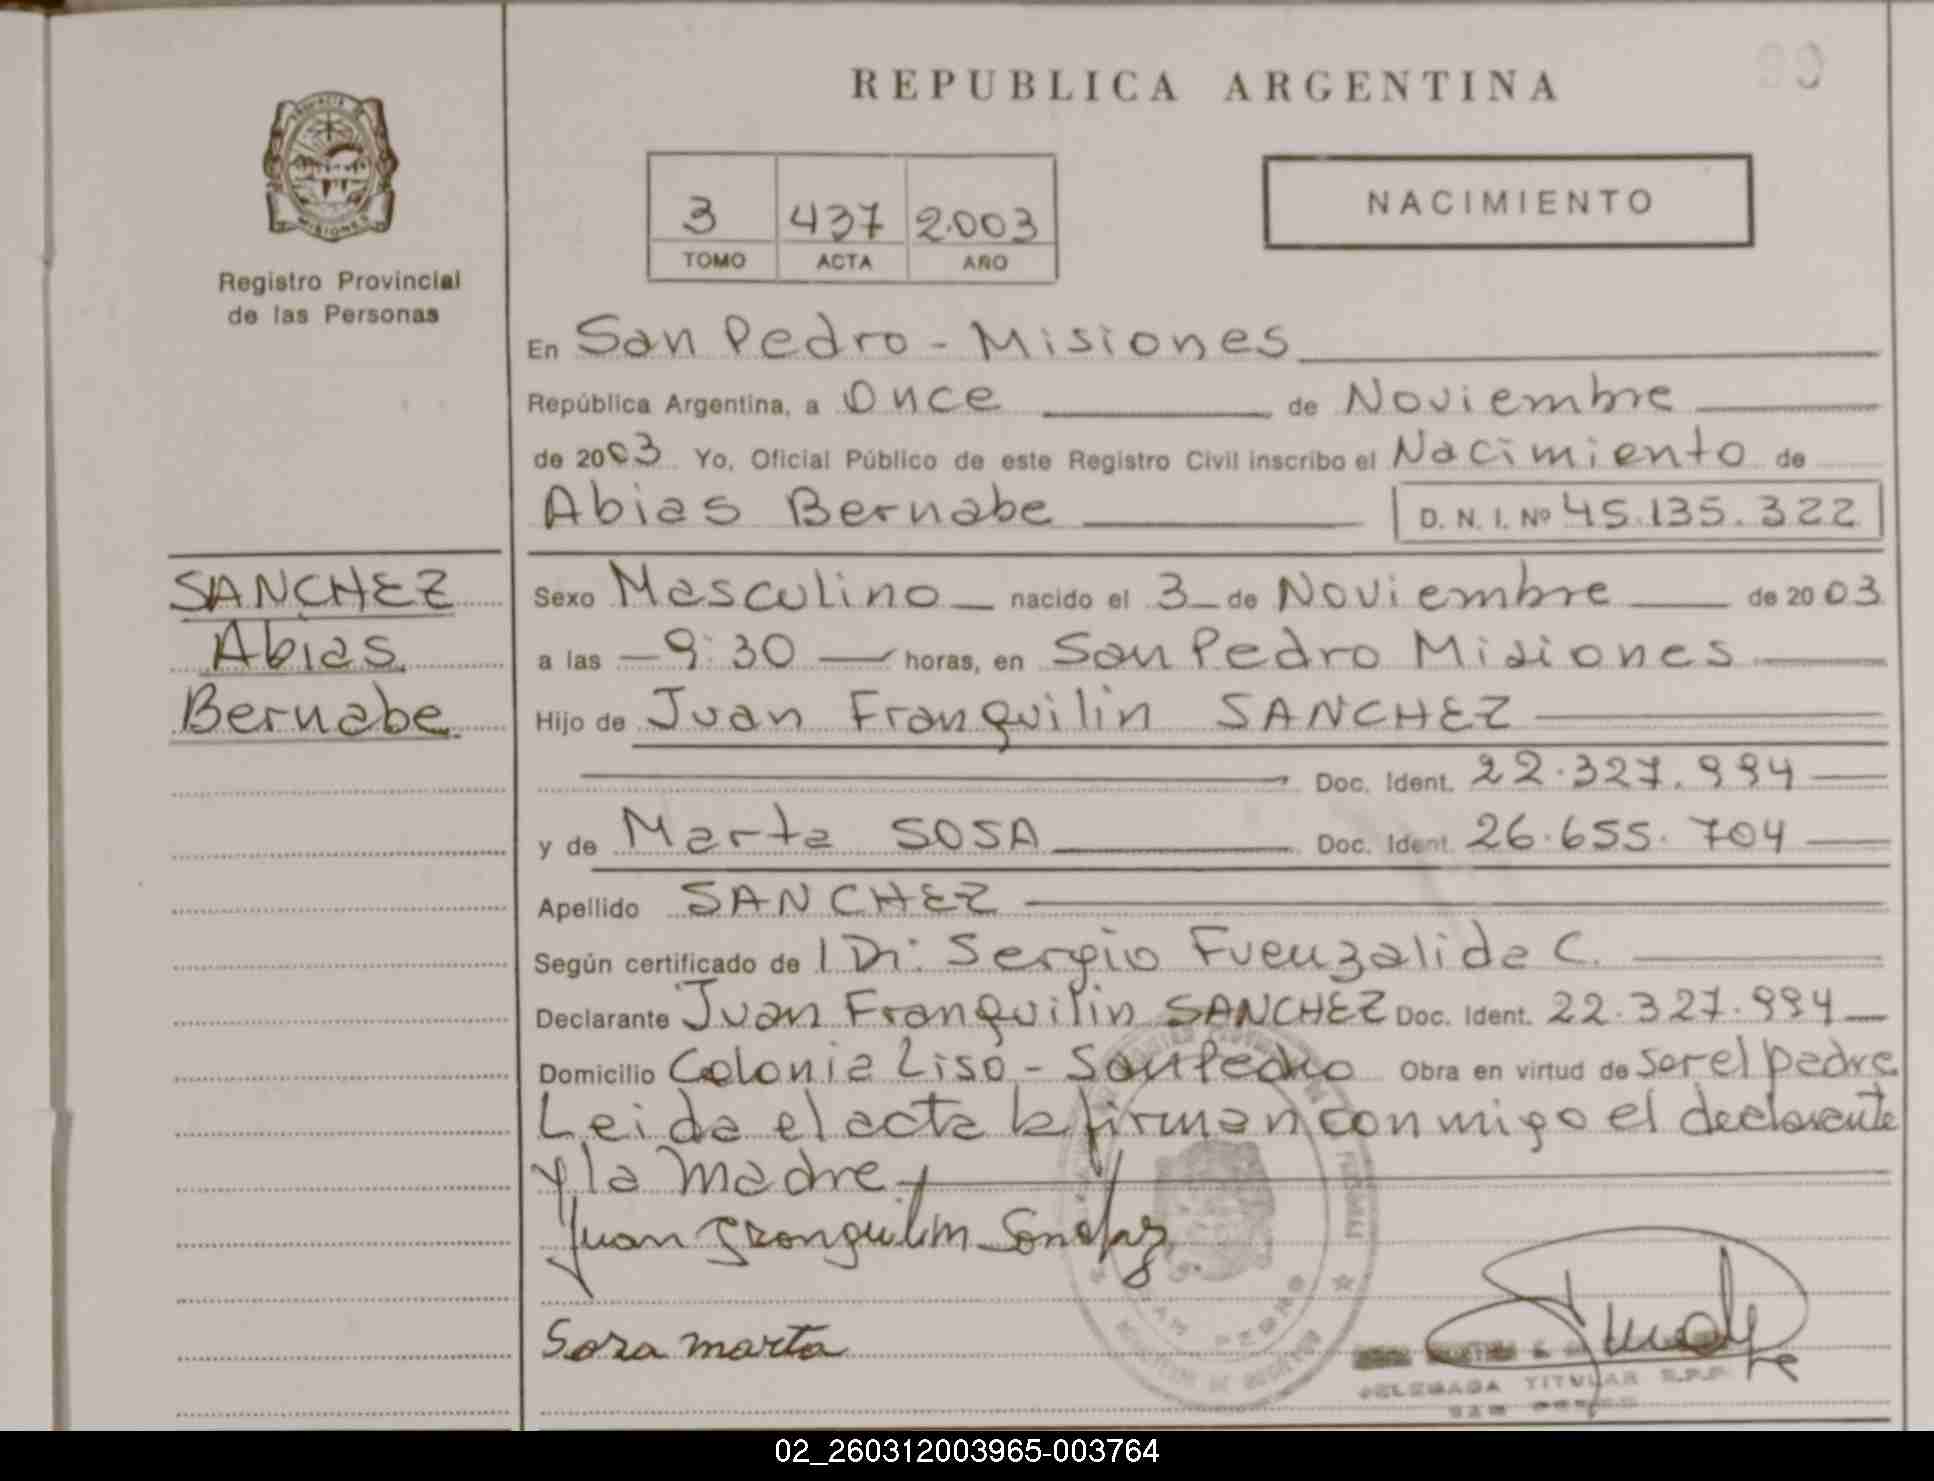 REPUBLICA ARGENTINA
MISIONES
Registro Provincial
de las Personas
3 437 2.003
TOMO ACTA AÑO
NACIMIENTO
En San Pedro - Misiones
República Argentina, a Once de Noviembre
de 2003 Yo, Oficial Público de este Registro Civil inscribo el Nacimiento de
Abias Bernabe D. N. I. Nº 45.135.322
SANCHEZ
Abias
Bernabe
Sexo Masculino nacido el 3 de Noviembre de 2003
a las 9:30 horas, en San Pedro Misiones
Hijo de Juan Franquilin SANCHEZ
Doc. Ident. 22.327.994
y de Marta SOSA Doc. Ident. 26.655.704
Apellido SANCHEZ
Según certificado de Dr: Sergio Fuenzalida C.
Declarante Juan Franquilin SANCHEZ Doc. Ident. 22.327.994
Domicilio Colonia Liso - San Pedro Obra en virtud de ser el padre
Leida el acta la firman conmigo el declarante
y la madre
Juan Franquilim Sanchez
Sosa marta
DELEGADA TITULAR R.P.P.
SAN PEDRO
02_260312003965-003764